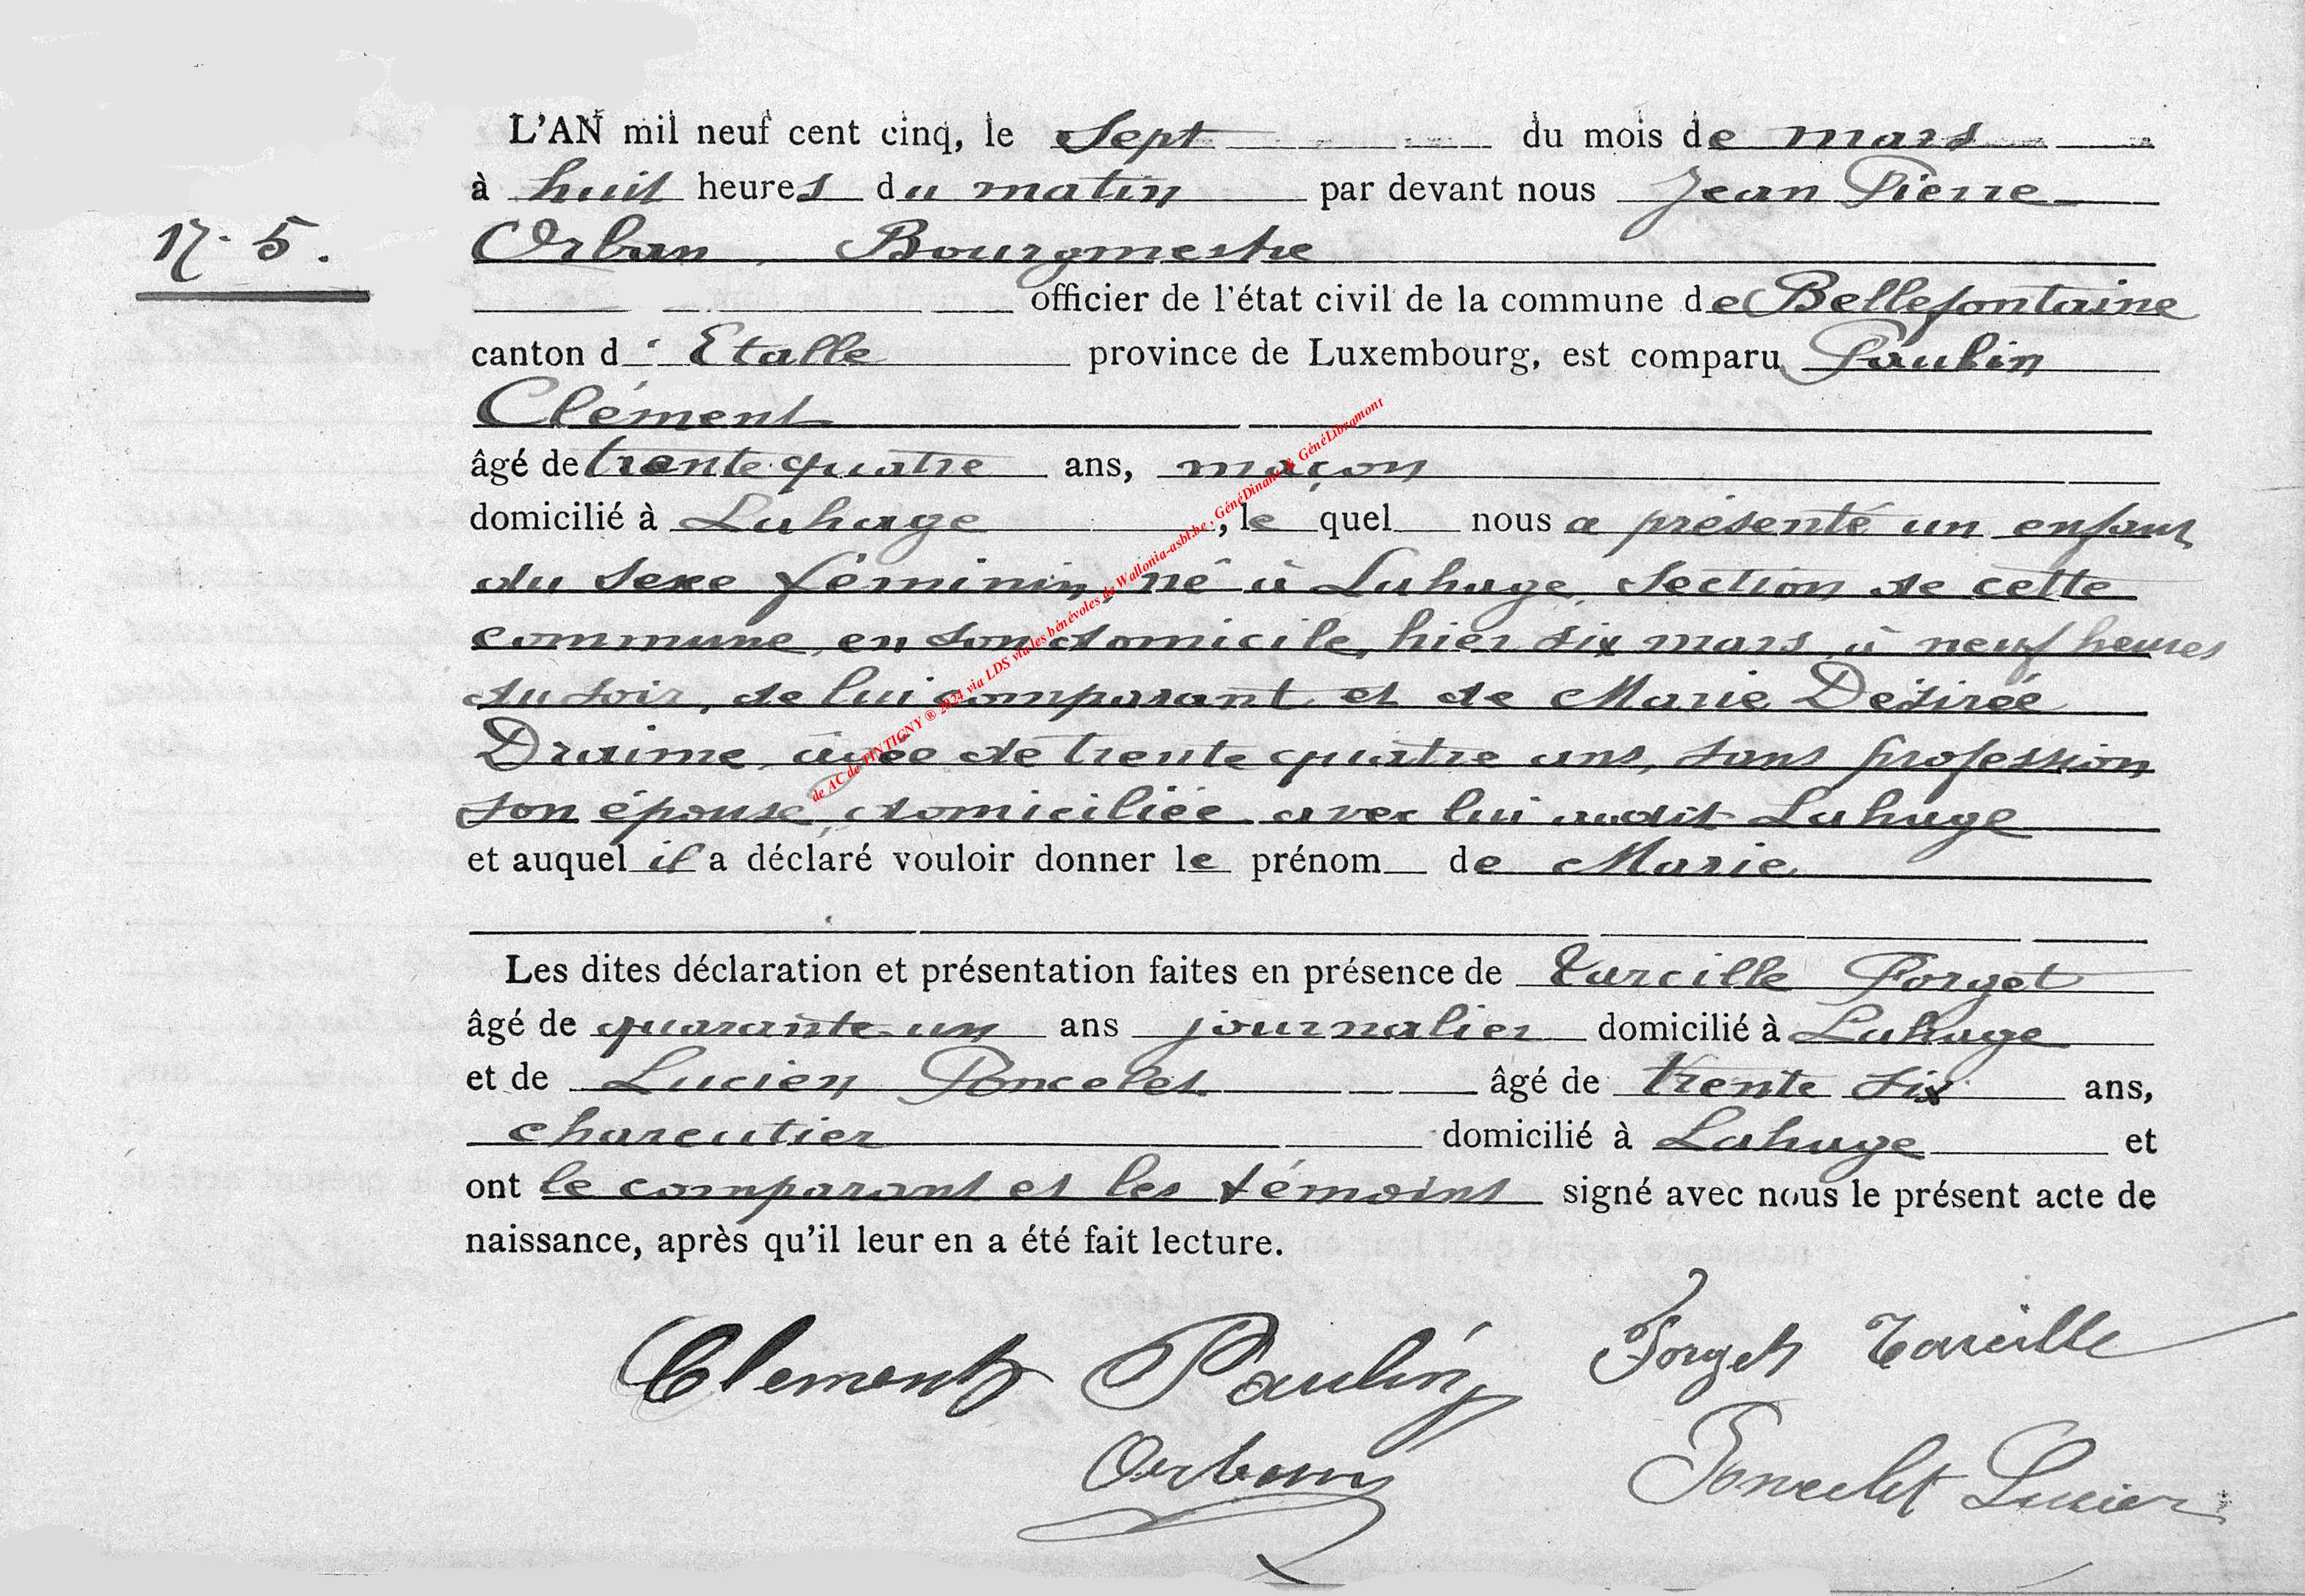 L'AN mil neuf cent cinq, le Sept du mois de mars
à huit heures du matin par devant nous Jean Pierre
N. 5.
Orban, Bourgmestre
officier de l'état civil de la commune de Bellefontaine
canton d' Etalle province de Luxembourg, est comparu Paulin
Clément
âgé de trente quatre ans, maçon
domicilié à Lahage, le quel nous a présenté un enfant
du sexe féminin, né à Lahage, section de cette
commune, en son domicile, hier six mars, à neuf heures
du soir, de lui comparant et de Marie Désirée
Draime, âgée de trente quatre ans, sans profession
son épouse, domiciliée avec lui audit Lahage
et auquel il a déclaré vouloir donner le prénom de Marie
Les dites déclaration et présentation faites en présence de Tarcille Forget
âgé de quarante-un ans journalier domicilié à Lahage
et de Lucien Poncelet âgé de trente six ans,
charcutier domicilié à Lahage et
ont le comparant et les témoins signé avec nous le présent acte de
naissance, après qu'il leur en a été fait lecture.
Clement Paulin Forget Tarcille
Orban Poncelet Lucien
de AC de TINTIGNY ® 2024 via LDS via les bénévoles de Wallonia-asbl.be, GénéDinant & GénéLibramont